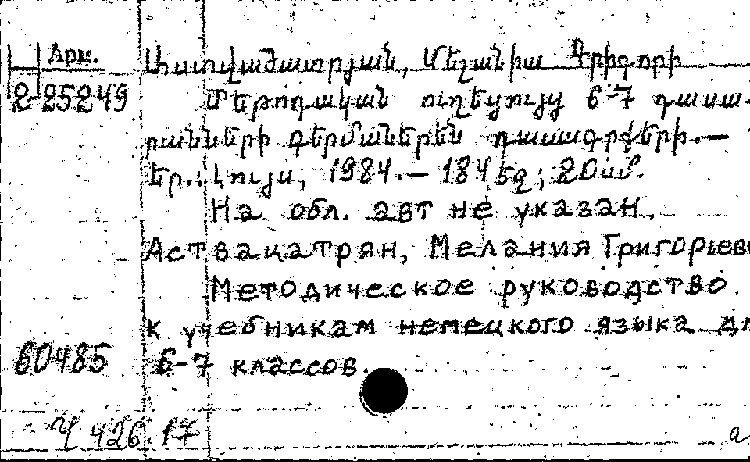 Арм.
2-25249
Աստվածատրյան, Մելանիա Գրիգորի
Մեթոդական ուղեցույց 6-7 դասա-
րանների գերմաներեն դասագրքերի.—
Եր.: Լույս, 1984.— 184 էջ; 20սմ.
На обл. авт не указан.
Аствацатрян, Мелания Григорьев
Методическое руководство
к учебникам немецкого языка дл
60485
6-7 классов.
Ч 426.17